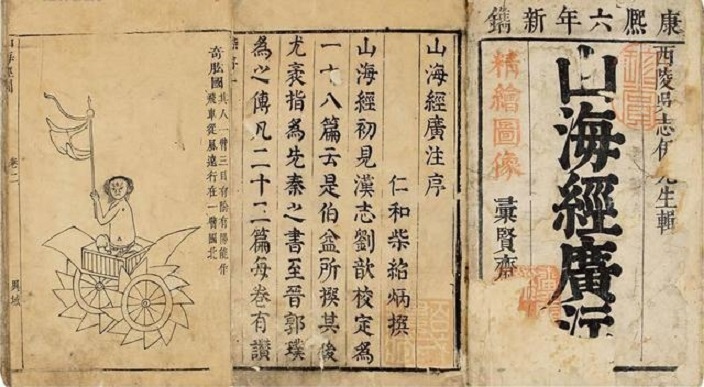 康熙六年新鐫
西陵吳志伊先生輯
山海經廣注
精繪圖像
彙賢齋
山海經廣注序
仁和柴紹炳撰
山海經初見漢志劉歆校定為
一十八篇云是伯益所撰其後
尤袤指為先秦之書至晉郭璞
為之傳凡二十二篇每卷有讚
奇肱國
其人一臂三目有陰有陽能作
飛車從風遠行在一臂國北
卷二
異域